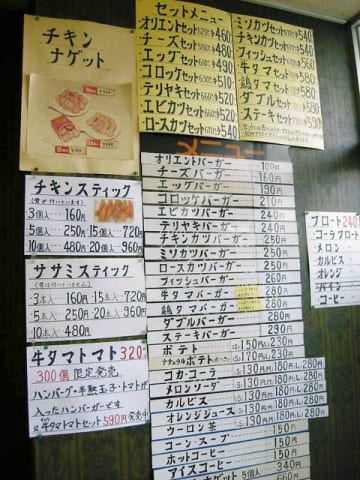 チキン
ナゲット
セットメニュー
オリエントセット520→¥460
チーズセット ¥480
エッグセット ¥490
コロッケセット ¥510
テリヤキセット ¥520
エビカツセット ¥520
ロースカツセット ¥540
ミソカツセット ¥540
チキンカツセット ¥540
フィッシュセット ¥560
牛タマセット ¥580
鶏タマセット ¥580
ダブルセット ¥580
ステーキセット ¥590
チキンスティック
(骨が付いています)
3個入…160円
5個入…250円 15個入…720円
10個入…480円 20個入…960円
ササミスティック
(骨は付いていません)
3本入…160円 15本入…720円
5本入…250円 20本入…960円
10本入…480円
牛タマトマト320円
300個限定発売
ハンバーグ・半熟玉子・トマトが
入ったハンバーガーです。
又牛タマトマトセット590円発売中
メニュー
オリエントバーガー 100円
チーズバーガー 160円
エッグバーガー 190円
コロッケバーガー 210円
エビカツバーガー 240円
テリヤキバーガー 240円
チキンカツバーガー 250円
ミソカツバーガー 250円
ロースカツバーガー 250円
フィッシュバーガー 260円
牛タマバーガー 280円
鶏タマバーガー 280円
ダブルバーガー 280円
ステーキバーガー 290円
ポテト (S)150円(L)230円
ナチュラルポテト (S)170円(L)250円
コカ・コーラ (S)130円(M)180円(L)280円
メロンソーダ (S)130円(M)180円(L)280円
カルピス (S)130円(M)180円(L)280円
オレンジジュース(S)130円(M)180円(L)280円
ウーロン茶 (S)130円(M)180円(L)280円
コーン・スープ 150円
ホットコーヒー 150円
アイスコーヒー 150円
チキンナゲット 5個入 340円
660円
フロート240円
コーラフロート
メロン 〃
カルピス 〃
オレンジ 〃
パイン 〃
コーヒー 〃